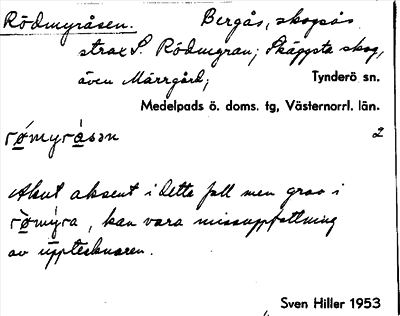 Rödmyråsen. Bergås, skogsås
strax S. Rödmyran; Skäggsta skog,
även Märrgård; Tynderö sn.
Medelpads ö. doms. tg, Västernorrl. län.
rómyråsən 2
Akut aksent i detta fall men grav i
ròmýra, kan vara missuppfattning
av uppteknaren.
Sven Hiller 1953